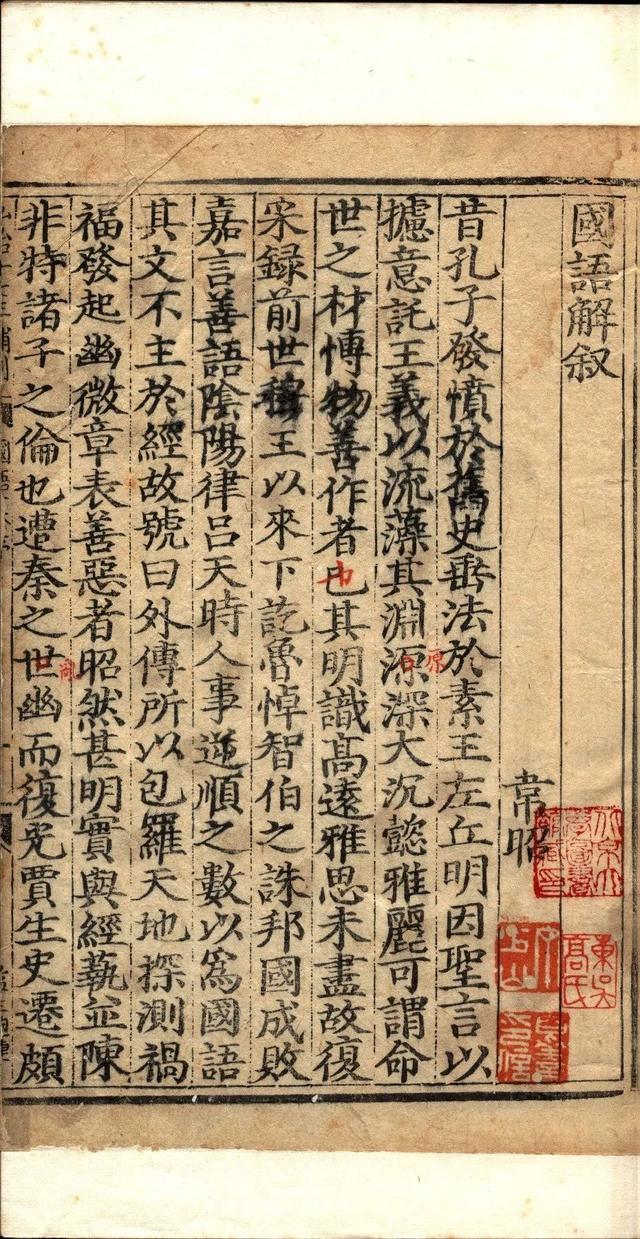 國語解叙
韋昭
昔孔子發憤於舊史垂法於素王左丘明因聖言以
攄意託王義以流藻其淵源深大沉懿雅麗可謂命
世之材博物善作者也其明識高遠雅思未盡故復
采録前世穆王以來下訖魯悼智伯之誅邦國成敗
嘉言善語陰陽律呂天時人事逆順之數以爲國語
其文不主於經故號曰外傳所以包羅天地探測禍
福發起幽微章表善惡者昭然甚明實與經藝並陳
非特諸子之倫也遭秦之世幽而復光賈生史遷頗
東吳
高氏
原
也